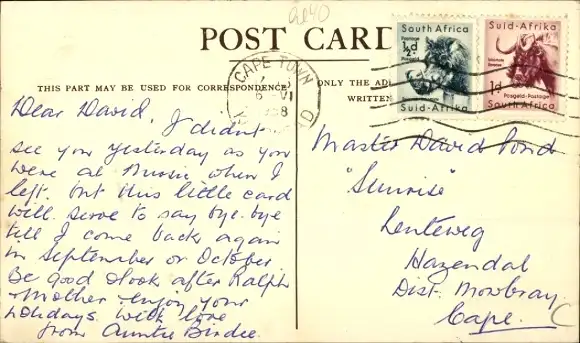 al40
POST CARD
THIS PART MAY BE USED FOR CORRESPONDENCE
ONLY THE
WRITTEN
CAPE TOWN
VI
South Africa
Postage
½d
Posgeld
Suid-Afrika
Suid-Afrika
1d
Posgeld-Postage
South Africa
Dear David,
I didn't
see you yesterday as you
were at Nursie when I
left. but this little card
will serve to say bye-bye
till I come back again
in September or October
Be good & look after Ralph
& Mother & enjoy your
holidays. With love
from Auntie Birdie.
Master David Pond
"Sunrise"
Lenteweg
Hazendal
Dist. Mowbray
Cape.